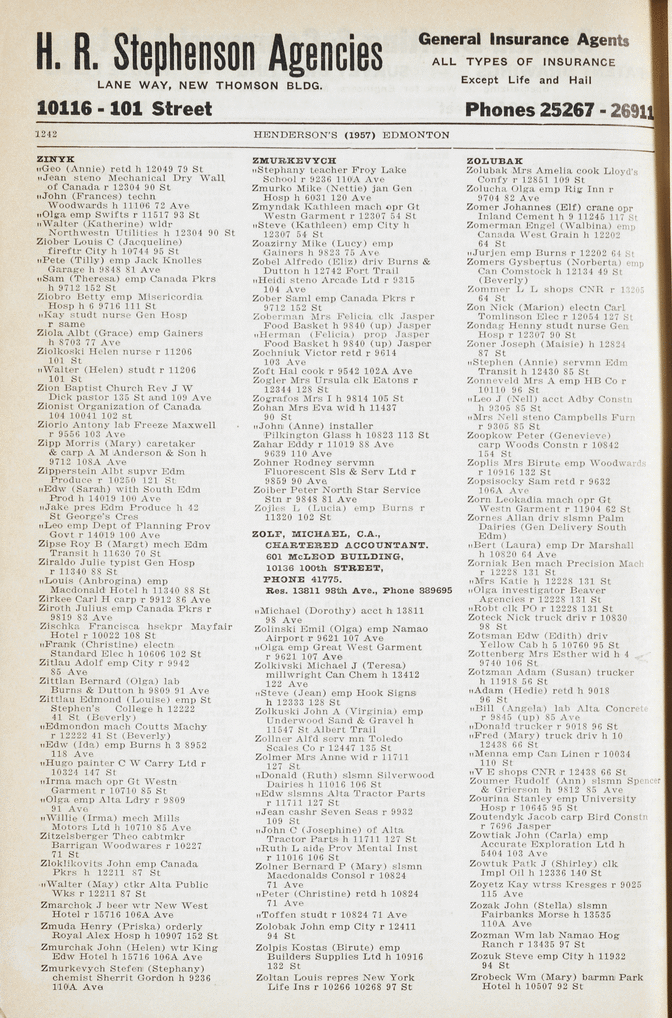 H. R. Stephenson Agencies
LANE WAY, NEW THOMSON BLDG.
General Insurance Agents
ALL TYPES OF INSURANCE
Except Life and Hail
10116 - 101 Street
Phones 25267 - 26911
1242
HENDERSON'S (1957) EDMONTON
ZINYK
"Geo (Annie) retd h 12049 79 St
"Jean steno Mechanical Dry Wall
of Canada r 12304 90 St
"John (Frances) techn
Woodwards h 11106 72 Ave
"Olga emp Swifts r 11517 93 St
"Walter (Katherine) widr
Northwestn Utilities h 12304 90 St
Ziober Louis C (Jacqueline)
fireftr City h 10744 95 St
"Pete (Tilly) emp Jack Knolles
Garage h 9848 81 Ave
"Sam (Theresa) emp Canada Pkrs
h 9712 152 St
Ziobro Betty emp Misericordia
Hosp h 6 9716 111 St
"Kay studt nurse Gen Hosp
r same
Ziola Albt (Grace) emp Gainers
h 8703 77 Ave
Ziolkoski Helen nurse r 11206
101 St
"Walter (Helen) studt r 11206
101 St
Zion Baptist Church Rev J W
Dick pastor 135 St and 109 Ave
Zionist Organization of Canada
104 10041 102 st
Ziorio Antony lab Freeze Maxwell
r 9556 103 Ave
Zipp Morris (Mary) caretaker
& carp A M Anderson & Son h
9712 108A Ave
Zipperstein Albt supvr Edm
Produce r 10250 121 St
"Edw (Sarah) with South Edm
Prod h 14019 100 Ave
"Jake pres Edm Produce h 42
St George's Cres
"Leo emp Dept of Planning Prov
Govt r 14019 100 Ave
Zipse Roy B (Margt) mech Edm
Transit h 11630 70 St
Ziraldo Julie typist Gen Hosp
r 11340 88 St
"Louis (Anbrogina) emp
Macdonald Hotel h 11340 88 St
Zirkee Carl H carp r 9912 86 Ave
Ziroth Julius emp Canada Pkrs r
9819 83 Ave
Zischka Francisca hsekpr Mayfair
Hotel r 10022 108 St
"Frank (Christine) electn
Standard Elec h 10606 102 St
Zitlau Adolf emp City r 9942
85 Ave
Zittlan Bernard (Olga) lab
Burns & Dutton h 9809 91 Ave
Zittlau Edmond (Louise) emp St
Stephen's College h 12222
41 St (Beverly)
"Edmondon mach Coutts Machy
r 12222 41 St (Beverly)
"Edw (Ida) emp Burns h 3 8952
118 Ave
"Hugo painter C W Carry Ltd r
10324 147 St
"Irma mach opr Gt Westn
Garment r 10710 85 St
"Olga emp Alta Ldry r 9809
91 Ave
"Willie (Irma) mech Mills
Motors Ltd h 10710 85 Ave
Zitzelsberger Theo cabtmkr
Barrigan Woodwares r 10227
71 St
Zloklikovits John emp Canada
Pkrs h 12211 87 St
"Walter (May) ctkr Alta Public
Wks r 12211 87 St
Zmarchok J beer wtr New West
Hotel r 15716 106A Ave
Zmuda Henry (Priska) orderly
Royal Alex Hosp h 10907 152 St
Zmurchak John (Helen) wtr King
Edw Hotel h 15716 106A Ave
Zmurkevych Stefen (Stephany)
chemist Sherrit Gordon h 9236
110A Ave
ZMURKEVYCH
"Stephany teacher Froy Lake
School r 9236 110A Ave
Zmurko Mike (Nettie) jan Gen
Hosp h 6031 120 Ave
Zmyndak Kathleen mach opr Gt
Westn Garment r 12307 54 St
"Steve (Kathleen) emp City h
12307 54 St
Zoazirny Mike (Lucy) emp
Gainers h 9823 75 Ave
Zobel Alfredo (Eliz) driv Burns &
Dutton h 12742 Fort Trail
"Heidi steno Arcade Ltd r 9315
104 Ave
Zober Saml emp Canada Pkrs r
9712 152 St
Zoberman Mrs Felicia clk Jasper
Food Basket h 9840 (up) Jasper
"Herman (Felicia) prop Jasper
Food Basket h 9840 (up) Jasper
Zochniuk Victor retd r 9614
103 Ave
Zoft Hal cook r 9542 102A Ave
Zogler Mrs Ursula clk Eatons r
12344 128 St
Zografos Mrs I h 9814 105 St
Zohan Mrs Eva wid h 11437
90 St
"John (Anne) installer
Pilkington Glass h 10823 113 St
Zahar Eddy r 11019 88 Ave
9639 110 Ave
Zohner Rodney servmn
Fluorescent Sls & Serv Ltd r
9859 90 Ave
Zoiber Peter North Star Service
Stn r 9848 81 Ave
Zojles L (Lucia) emp Burns r
11320 102 St
ZOLF, MICHAEL, C.A.,
CHARTERED ACCOUNTANT.
601 McLEOD BUILDING,
10136 100th STREET,
PHONE 41775.
Res. 13811 98th Ave., Phone 889695
"Michael (Dorothy) acct h 13811
98 Ave
Zolinski Emil (Olga) emp Namao
Airport r 9621 107 Ave
"Olga emp Great West Garment
r 9621 107 Ave
Zolkivski Michael J (Teresa)
millwright Can Chem h 13412
122 Ave
"Steve (Jean) emp Hook Signs
h 12333 128 St
Zolkuski John A (Virginia) emp
Underwood Sand & Gravel h
11547 St Albert Trail
Zollner Alfd serv mn Toledo
Scales Co r 12447 135 St
Zolmer Mrs Anne wid r 11711
127 St
"Donald (Ruth) slsmn Silverwood
Dairies h 11016 106 St
"Edw slsmns Alta Tractor Parts
r 11711 127 St
"Jean cashr Seven Seas r 9932
109 St
"John C (Josephine) of Alta
Tractor Parts h 11711 127 St
"Ruth L aide Prov Mental Inst
r 11016 106 St
Zolner Bernard P (Mary) slsmn
Macdonalds Consol r 10824
71 Ave
"Peter (Christine) retd h 10824
71 Ave
"Toffen studt r 10824 71 Ave
Zolobak John emp City r 12411
94 St
Zolpis Kostas (Birute) emp
Builders Supplies Ltd h 10916
132 St
Zoltan Louis repres New York
Life Ins r 10266 10268 97 St
ZOLUBAK
Zolubak Mrs Amelia cook Lloyd's
Confy r 12851 109 St
Zolucha Olga emp Rig Inn r
9704 82 Ave
Zomer Johannes (Elf) crane opr
Inland Cement h 9 11245 117 St
Zomerman Engel (Walbina) emp
Canada West Grain h 12202
64 St
"Jurjen emp Burns r 12202 64 St
Zomers Gysbertus (Norberta) emp
Can Comstock h 12134 49 St
(Beverly)
Zommer L L shops CNR r 13205
64 St
Zon Nick (Marion) electn Carl
Tomlinson Elec r 12054 127 St
Zondag Henny studt nurse Gen
Hosp r 12307 90 St
Zoner Joseph (Maisie) h 12824
87 St
"Stephen (Annie) servmn Edm
Transit h 12430 85 St
Zonneveld Mrs A emp HB Co r
10110 96 St
"Leo J (Nell) acct Adby Constn
h 9305 85 St
"Mrs Nell steno Campbells Furn
r 9305 85 St
Zoopkow Peter (Genevieve)
carp Woods Constn r 10842
154 St
Zoplis Mrs Birute emp Woodwards
r 10916 132 St
Zopsisocky Sam retd r 9632
106A Ave
Zorn Leokadia mach opr Gt
Westn Garment r 11904 62 St
Zornes Allan driv slsmn Palm
Dairies (Gen Delivery South
Edm)
"Bert (Laura) emp Dr Marshall
h 10820 64 Ave
Zorniak Ben mach Precision Mach
r 12228 131 St
"Mrs Katie h 12228 131 St
"Olga investigator Beaver
Agencies r 12228 131 St
"Robt clk PO r 12228 131 St
Zoteck Nick truck driv r 10830
98 St
Zotsman Edw (Edith) driv
Yellow Cab h 5 10760 95 St
Zottenberg Mrs Esther wid h 4
9740 106 St
Zotzman Adam (Susan) trucker
h 11918 56 St
"Adam (Hedie) retd h 9018
96 St
"Bill (Angela) lab Alta Concrete
r 9845 (up) 85 Ave
"Donald trucker r 9018 96 St
"Fred (Mary) truck driv h 10
12438 66 St
"Menna emp Can Linen r 10034
110 St
"W E shops CNR r 12438 66 St
Zoumer Rudolf (Ann) slsmn Spencer
& Grierson h 9812 85 Ave
Zourina Stanley emp University
Hosp r 10645 95 St
Zoutendyk Jacob carp Bird Constn
r 7696 Jasper
Zowtiak John (Carla) emp
Accurate Exploration Ltd h
5404 103 Ave
Zowtuk Patk J (Shirley) clk
Impl Oil h 12336 140 St
Zoyetz Kay wtrss Kresges r 9025
115 Ave
Zozak John (Stella) slsmn
Fairbanks Morse h 13535
110A Ave
Zozman Wm lab Namao Hog
Ranch r 13435 97 St
Zozuk Steve emp City h 11932
94 St
Zrobeck Wm (Mary) barmn Park
Hotel h 10507 92 St